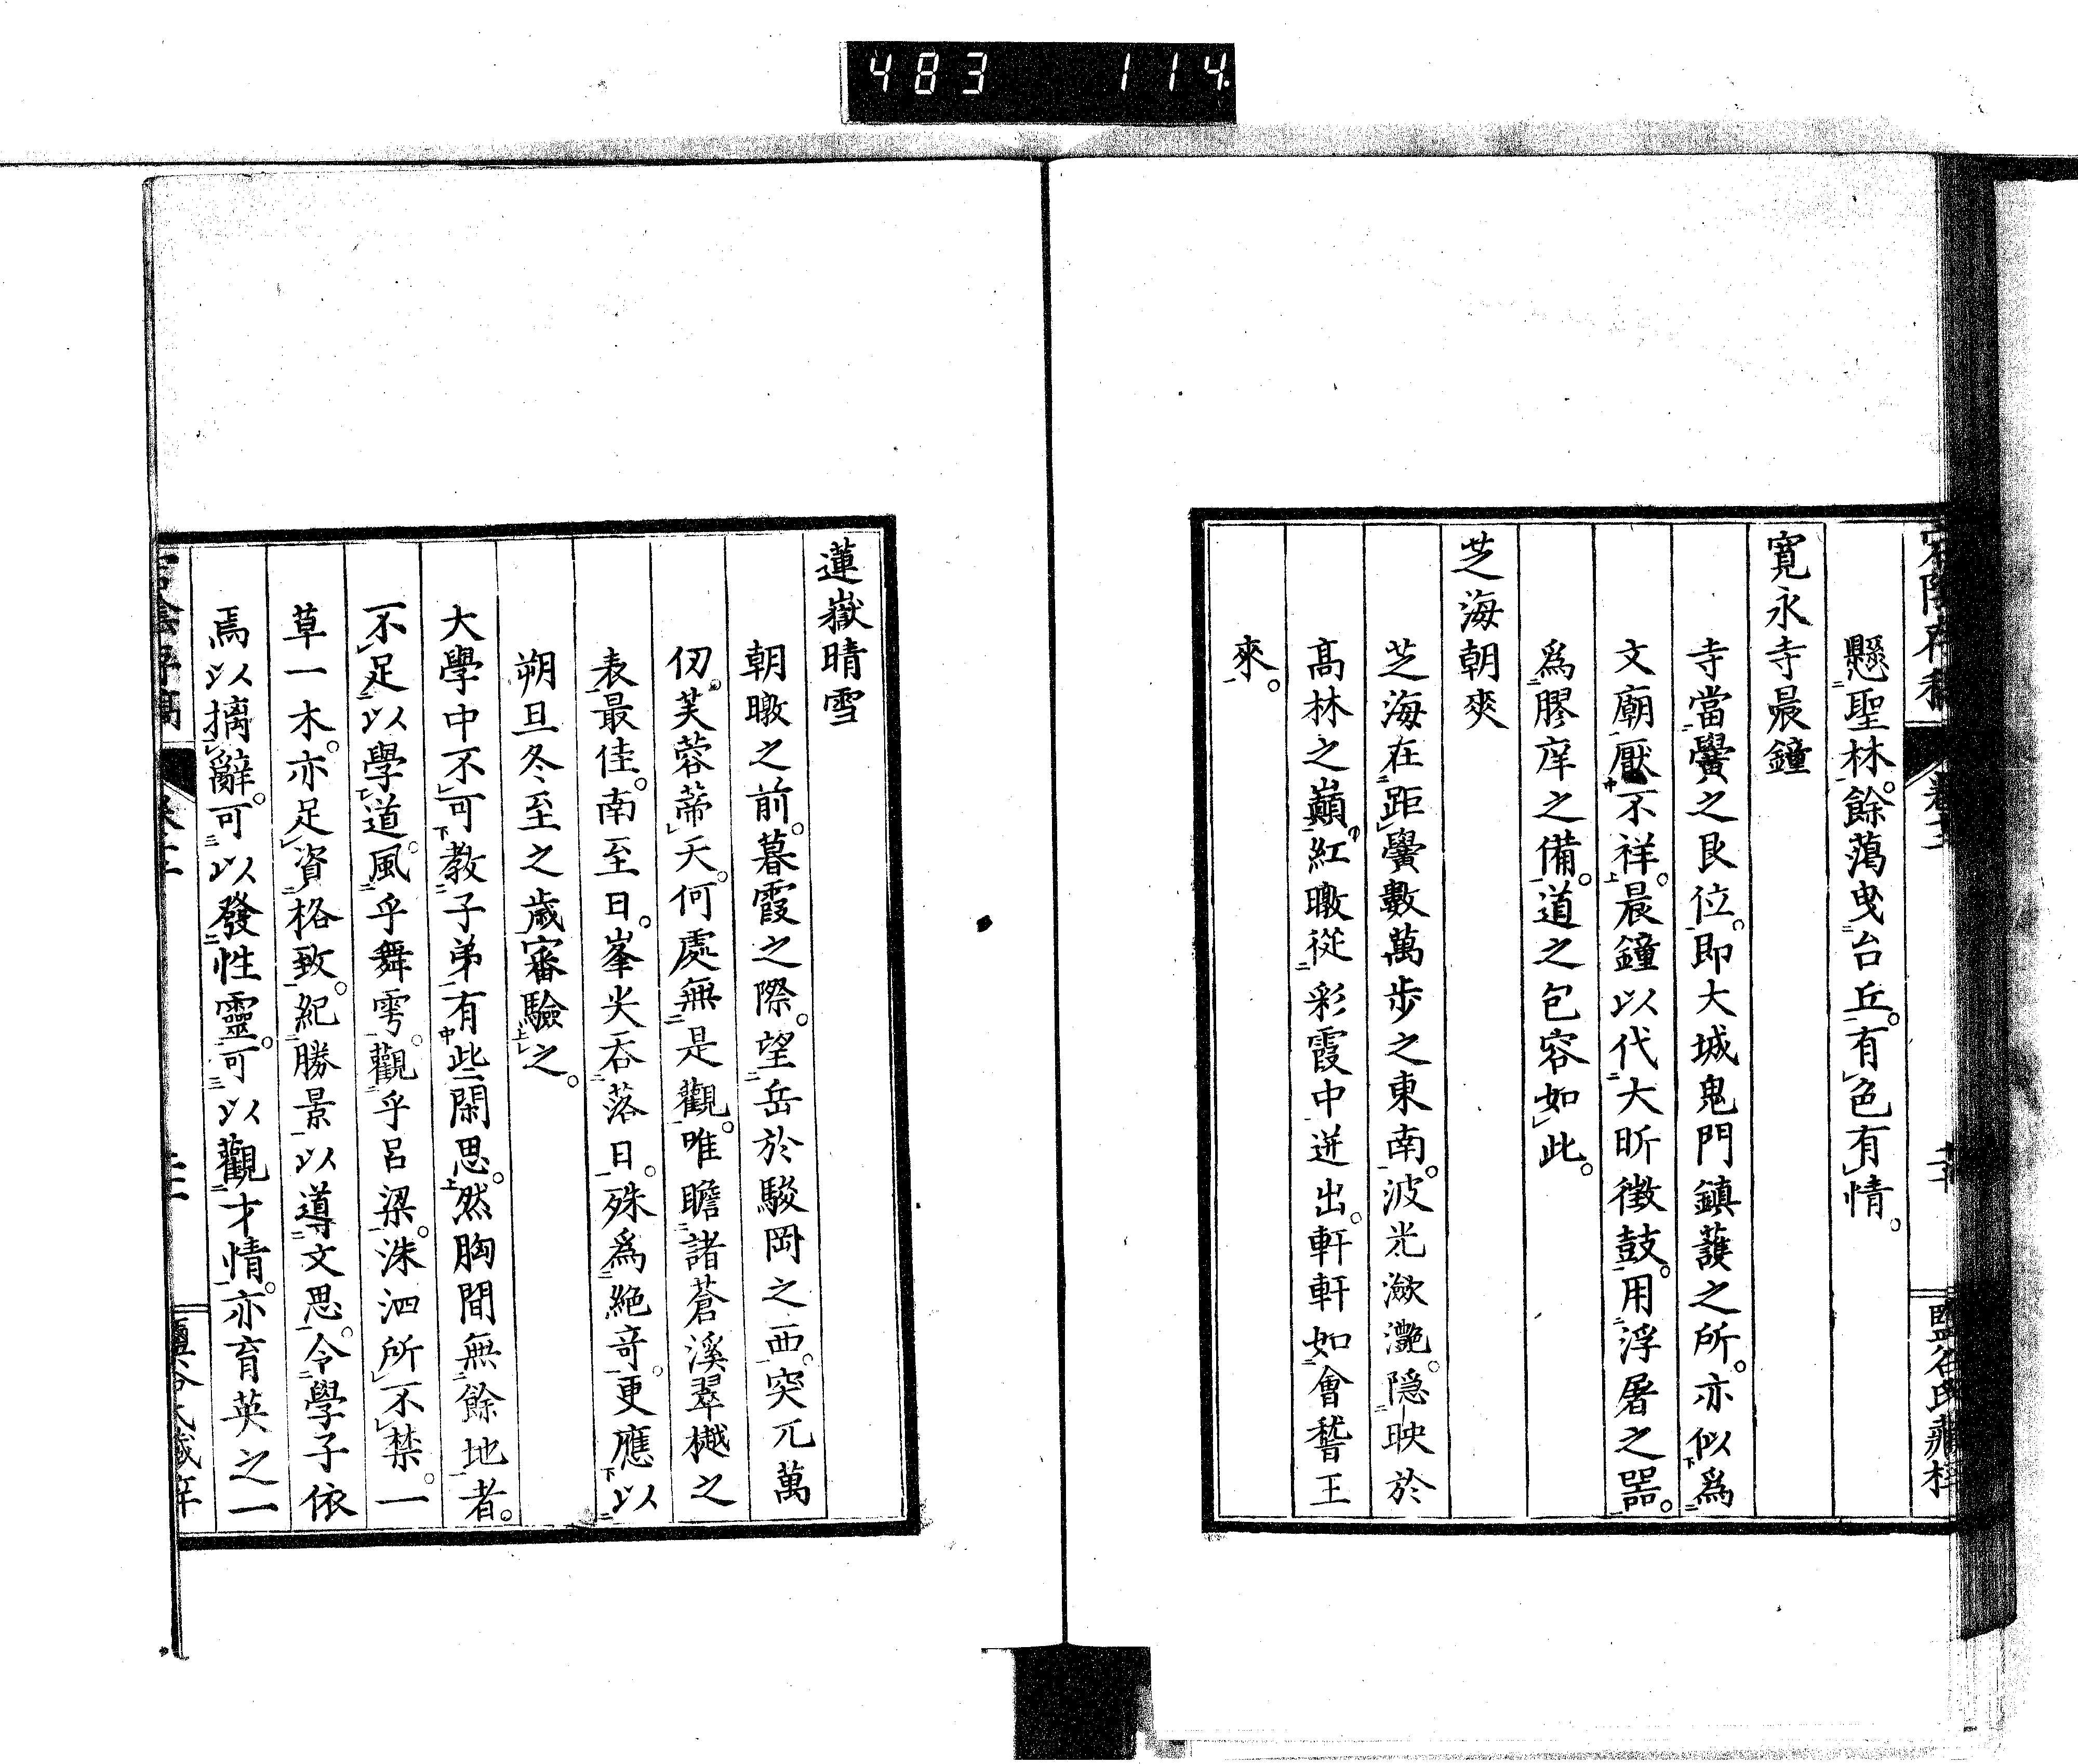 483 114
懸聖林。餘蕩曳台丘。有色有情。
寬永寺晨鐘
寺當黌之艮位。即大城鬼門鎮護之所。亦似爲
文廟厭不祥。晨鐘以代大昕徵鼓。用浮屠之器。
爲膠庠之備。道之包容如此。
芝海朝爽
芝海在距黌數萬步之東南。波光瀲灔。隱映於
高林之巔。紅暾從彩霞中迸出。軒軒如會稽王
來。
蓮嶽晴雪
朝暾之前。暮霞之際。望岳於駿岡之西。突兀萬
仞。芙蓉蒂天。何處無是觀。唯瞻諸蒼溪翠樾之
表最佳。南至日。峯尖吞落日。殊爲絶竒。更應以
朔旦冬至之歲審驗之。
大學中不可教子弟有些閑思。然胸間無餘地者。
不足以學道。風乎舞雩。觀乎呂梁。洙泗所不禁。一
草一木。亦足資格致。紀勝景以導文思。令學子依
焉以摛辭。可以發性靈。可以觀才情。亦育英之一